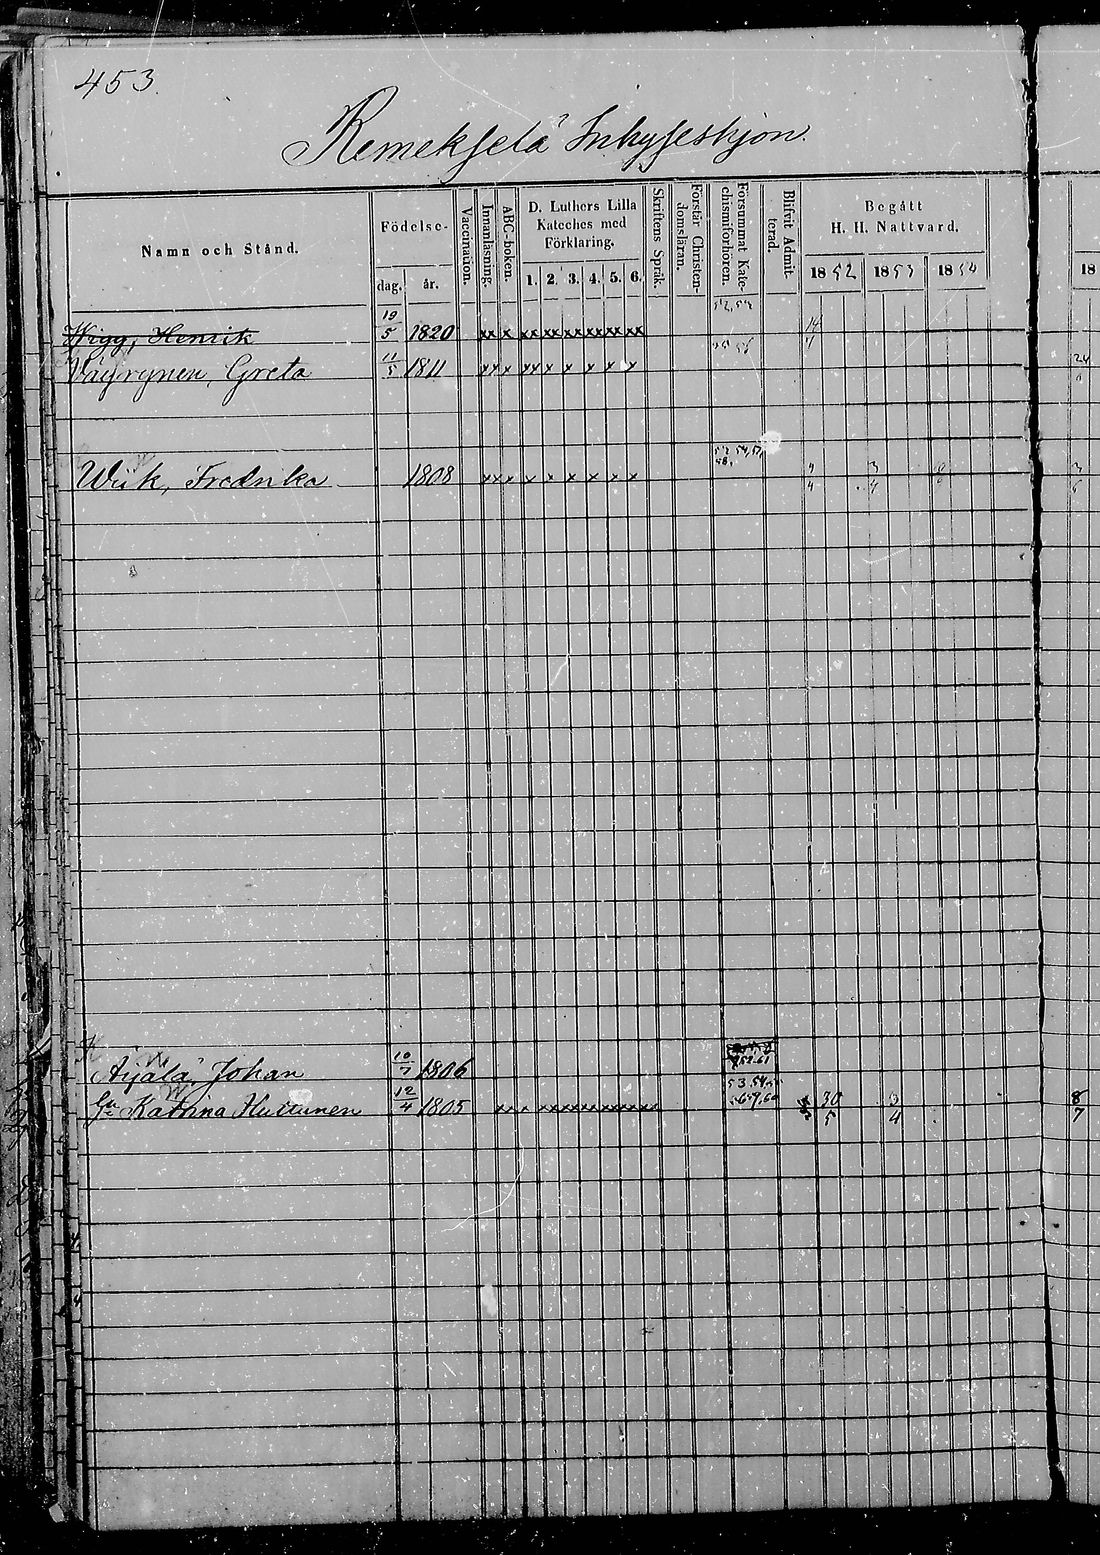 453.
Remekselä Inhyseshjon.
Namn och Stånd.
Födelse-
dag. år.
Vaccination.
Innanläsning.
ABC-boken.
D. Luthers Lilla
Kateches med
Förklaring.
1. 2. 3. 4. 5. 6.
Skriftens Språk.
Förstår Christen-
domsläran.
Försummat Kate-
chismiförhören.
Blifvit Admit-
terad.
Begått
H. H. Nattvard.
1852 1853 1854
18
Wigg, Henrik 19/5 1820 xx x xx xx xx xx xx xx 14/4
Väyrynen, Greta 11/5 1811 xx x xx x x x x x 24
Wiik, Fredrika 1808 xx x x x x x x x
Äijälä, Johan 10/7 1806 52.61
Hu Katrina Huttunen 12/4 1805 30/5 3/4 8/7